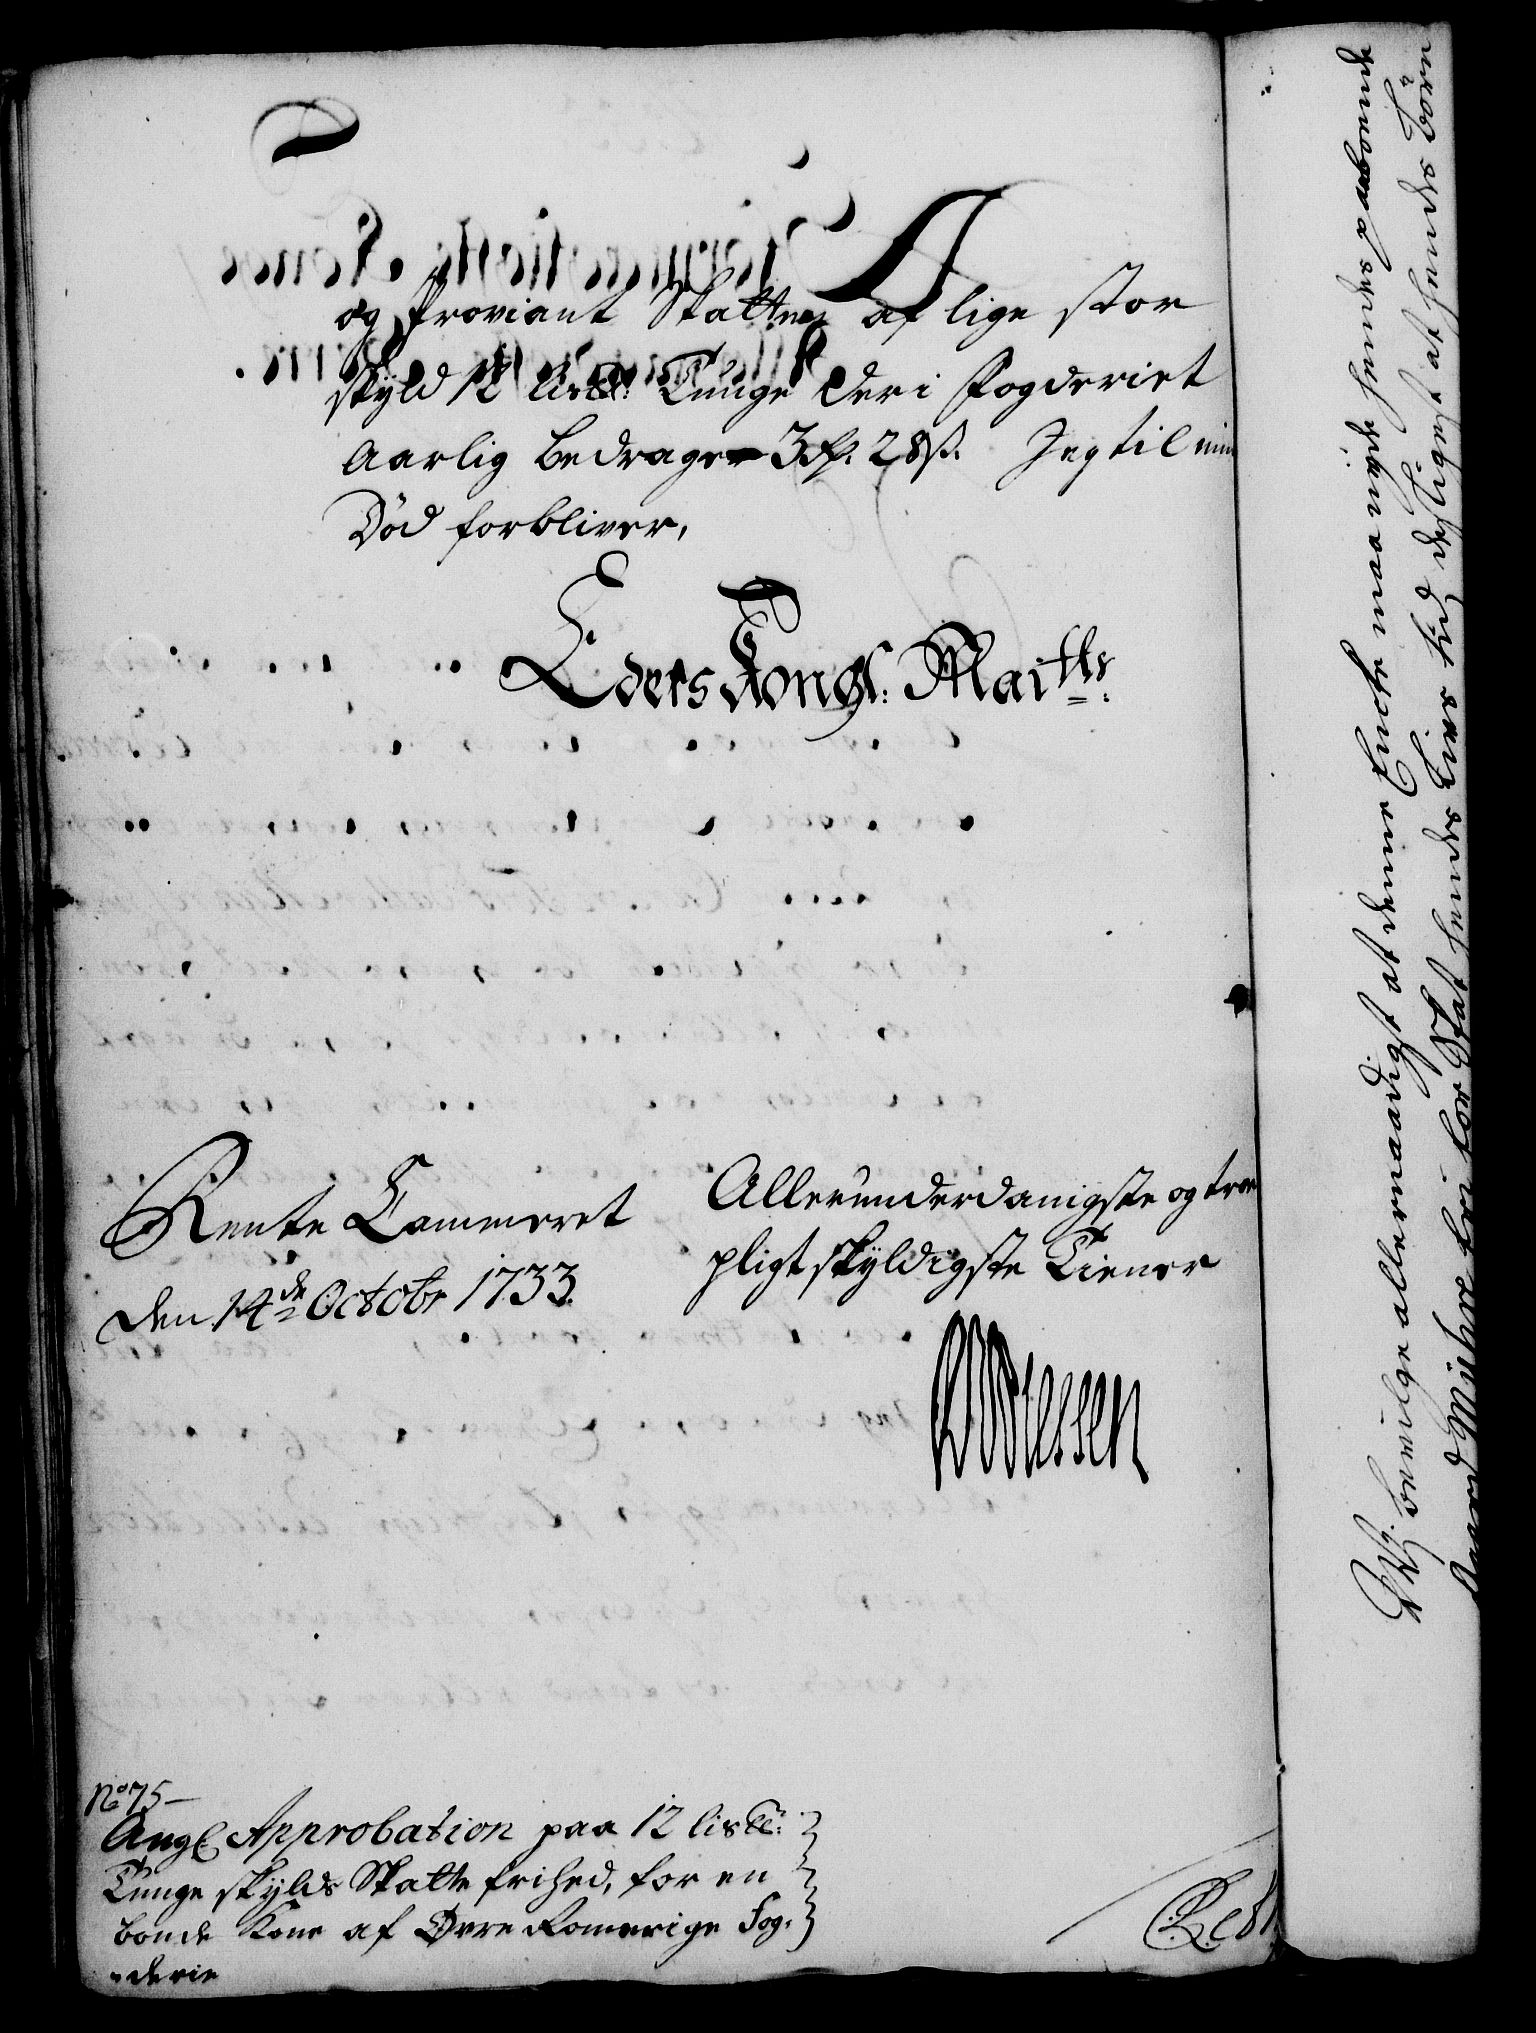 og Proviant Skatten af lige stor
skyld 12 lis℔: Tunge der i Fogderiet
Aarlig bedrager 3 rd. 28 s. Jeg til min
Død forbliver,
Eders Kongl: Maits:
Rente Cammeret
den 14de Octobr 1733.
Allerunderdanigste og troe
pligtskyldigste Tiener
No 75
Angl Approbation paa 12 lis℔:
Tunge skylds Skatte frihed, for en
bonde Kone af Øvre Romerige Fog-
derie
Vi bevilge allernaadigst at denne Encke maa nyde hendes paaboende
Gaard Mühre frie for Skat hendes Livs tid desligest at hendes Børn